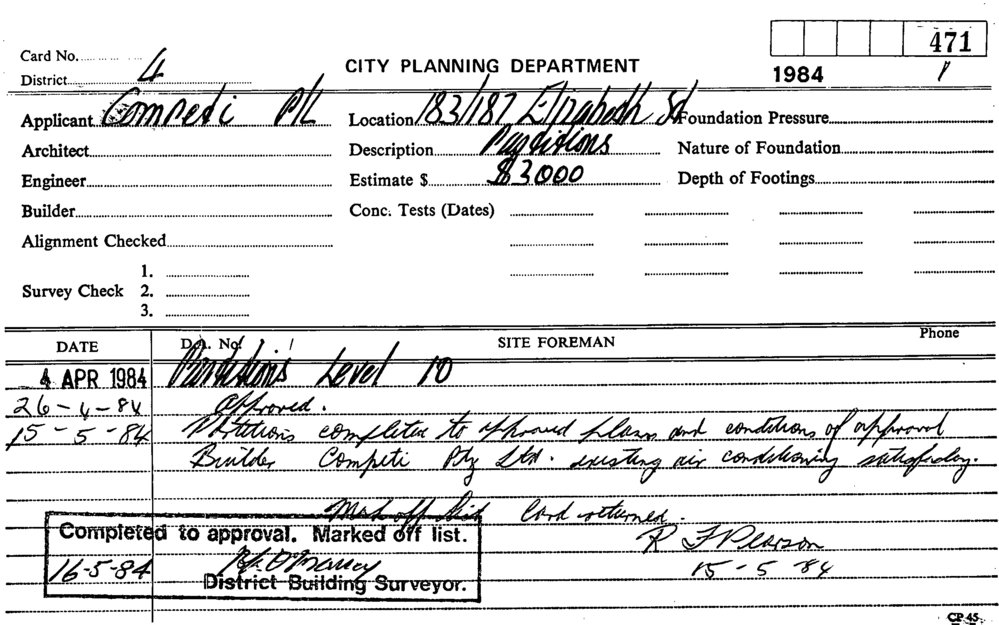 471
Card No.
District 4
CITY PLANNING DEPARTMENT
1984
Applicant Competi P/L Location 183/187 Elizabeth St Foundation Pressure
Architect Description Partitions Nature of Foundation
Engineer Estimate $ $3000 Depth of Footings
Builder Conc. Tests (Dates)
Alignment Checked
1.
Survey Check 2.
3.
DATE D.A. No. SITE FOREMAN Phone
4 APR 1984 Partitions Level 10
26-4-84 Approved.
15-5-84 Partitions completed to approved plans and conditions of approval
Builder Competi Pty Ltd. existing air conditioning satisfactory.
Mark off List Card returned.
Completed to approval. Marked off list.
R F Pearson
16-5-84
15-5-84
District Building Surveyor.
CP 45